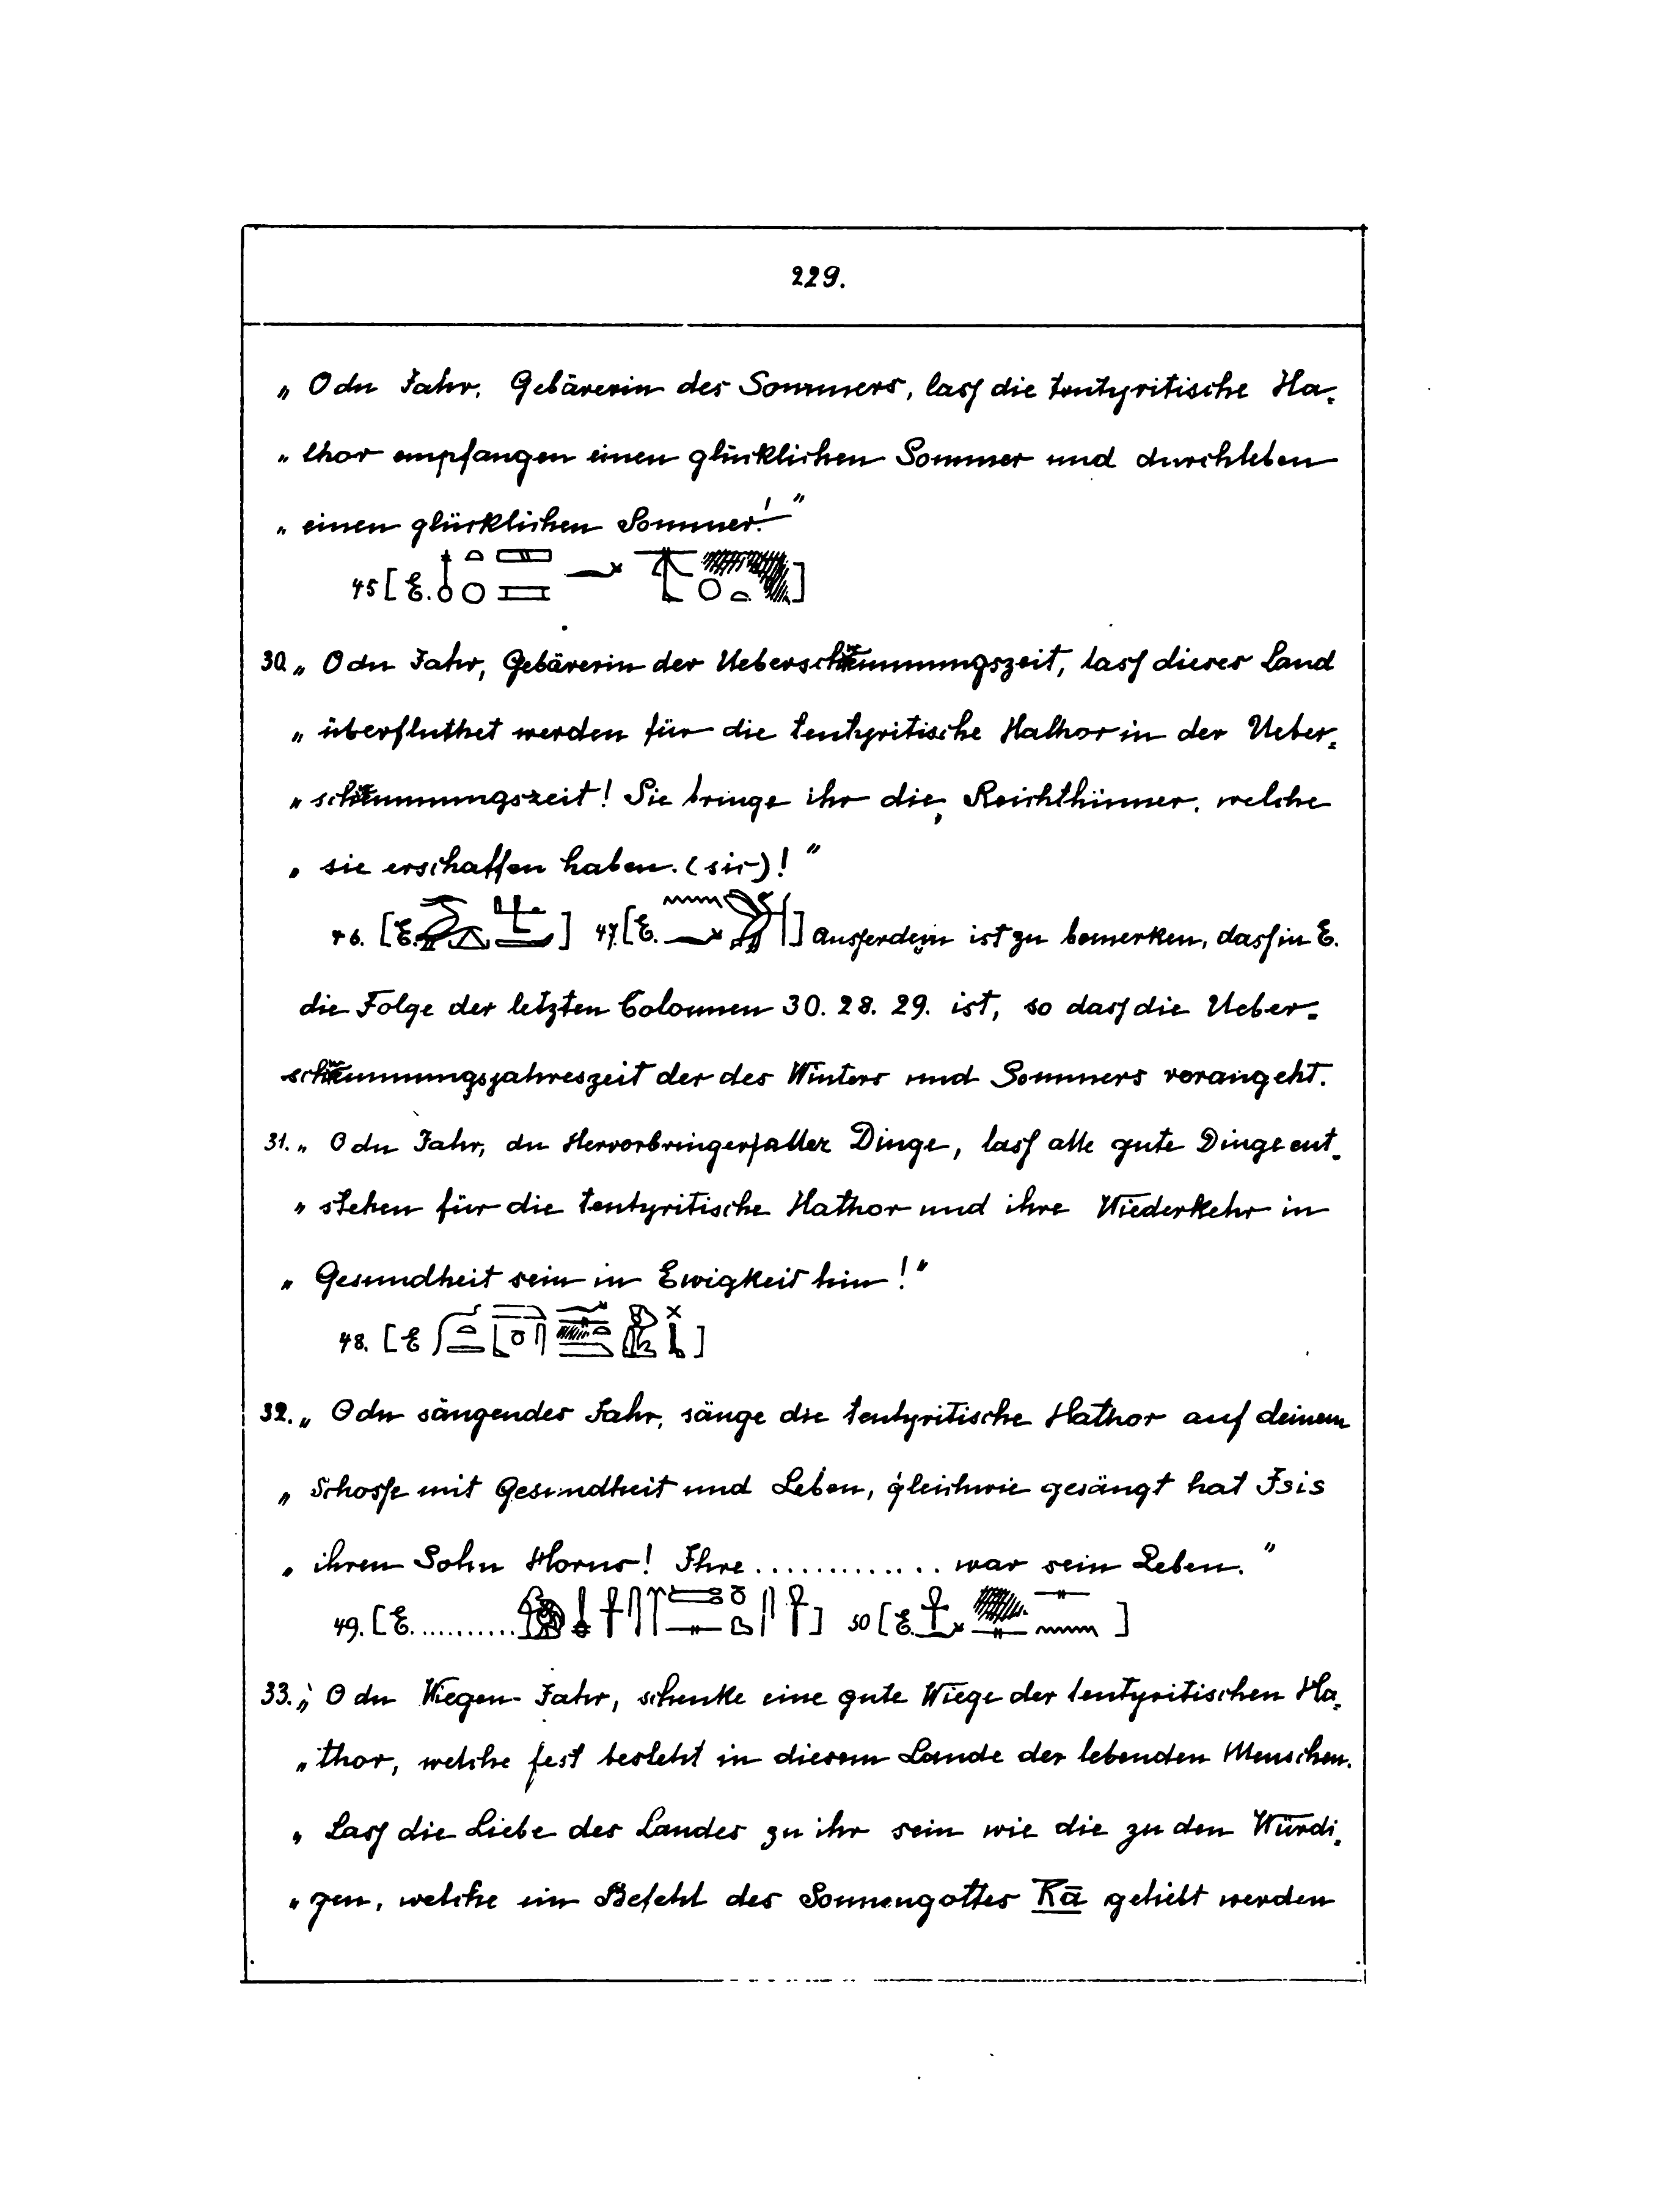 229.
„ O du Jahr, Gebärerin des Sommers, lass die tentyritische Ha-
„ thor empfangen einen glücklichen Sommer und durchleben
„ einen glücklichen Sommer!"
45 [E. ]
30. „ O du Jahr, Gebärerin der Ueberschwemmungszeit, lass dieses Land
„ überfluthet werden für die tentyritische Hathor in der Ueber-
„ schwemmungszeit! Sie bringe ihr die Reichthümer, welche
„ sie erschaffen haben. (sic)!"
46. [E. ] 47. [E. ] Ausserdem ist zu bemerken, dass in E.
die Folge der letzten Colonnen 30. 28. 29. ist, so dass die Ueber-
schwemmungsjahreszeit der des Winters und Sommers vorangeht.
31. „ O du Jahr, du Hervorbringer aller Dinge, lass alle gute Dinge ent-
„ stehen für die tentyritische Hathor und ihre Wiederkehr in
„ Gesundheit sein in Ewigkeit hin!"
48. [E ]
32. „ O du säugendes Jahr, säuge die tentyritische Hathor auf deinem
„ Schosse mit Gesundheit und Leben, gleichwie gesäugt hat Isis
„ ihren Sohn Horus! Ihre ............. war sein Leben."
49. [E. ........... ] 50 [E. ]
33. „ O du Wiegen-Jahr, schenke eine gute Wiege der tentyritischen Ha-
„ thor, welche fest besteht in diesem Lande der lebenden Menschen.
„ Lass die Liebe des Landes zu ihr sein wie die zu den Würdi-
„ gen, welche ein Befehl des Sonnengottes Rā geliebt werden